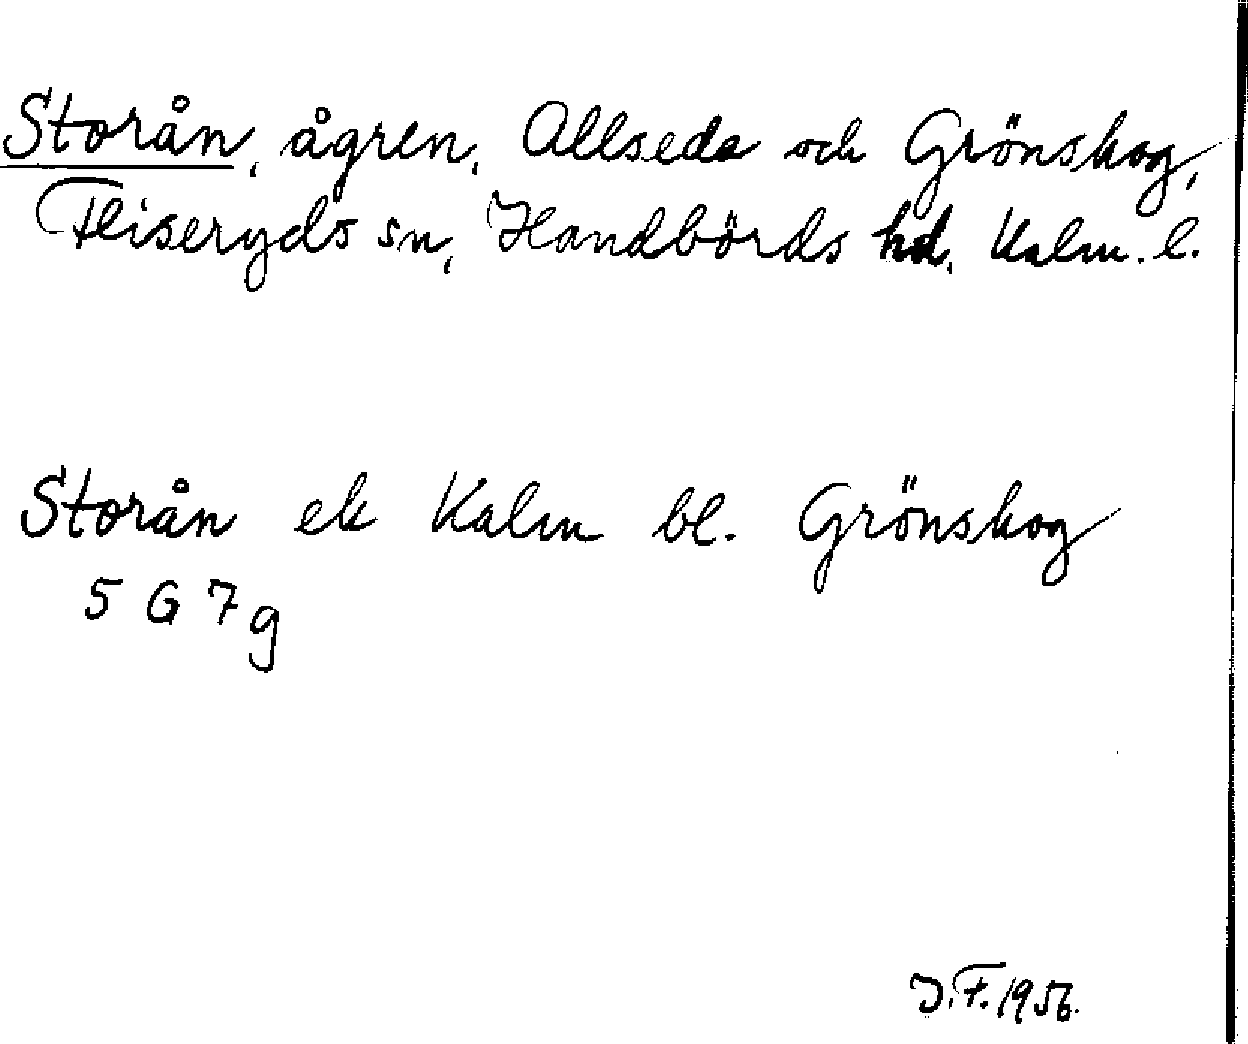 Storån, ågren, Allseda och Grönskog,
Fliseryds sn, Handbörds hd, Kalm. l.
Storån ek Kalm bl. Grönskog
5 G 7 g
J.F. 1956.